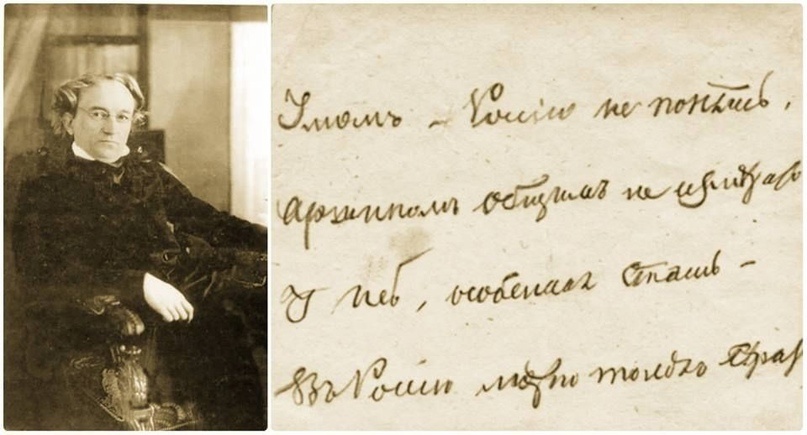 Умомъ – Россію не понять,
Аршиномъ общимъ не
У ней, особенная стать –
Въ Россію можно только